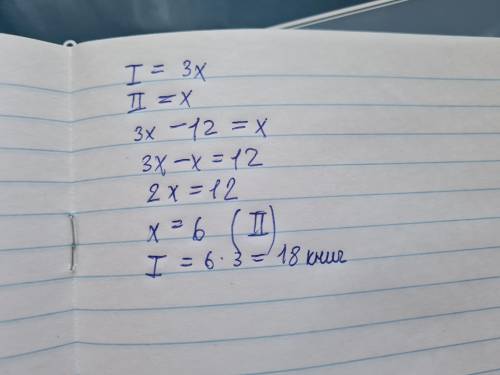 I = 3x
II = x
3x - 12 = x
3x - x = 12
2x = 12
x = 6 (II)
I = 6 · 3 = 18 книг